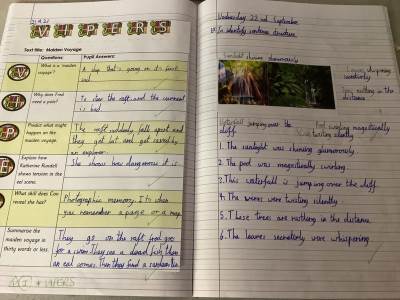 21.9.21
VIPERS
Text title: Maiden Voyage
Questions:
Pupil Answers:
V
What is a 'maiden voyage'?
A ship that's going on it's first sail.
Why does Fred need a pole?
To steer the raft and the current is bad.
P
Predict what might happen on the maiden voyage.
The raft suddenly falls apart and they get lost and get saved by an explorer.
E
Explain how Katherine Rundell shows tension in the eel scene.
She shows how dangerous it is.
What skill does Con reveal she has?
Photographic memory. It is when you remember a page or a map.
Summarise the maiden voyage in thirty words or less.
They go on the raft. Fred goes
for a swim. They see a dead fish then
an eel comes. Then they find a sardine tin.
Wednesday 22nd September
to identify sentence structure
Sunlight shining glamorously
Leaves whispering
secretively
Trees rustling in the
distance
Waterfall jumping over the
cliff
Pool swirling magestically
twisting silently
1. The sunlight was shining glamorously.
2. The pool was magestically swirling.
3. This waterfall is jumping over the cliff
4. The vines were twisting silently.
5. These trees are rustling in the distance.
6. The leaves secretively were whispering.